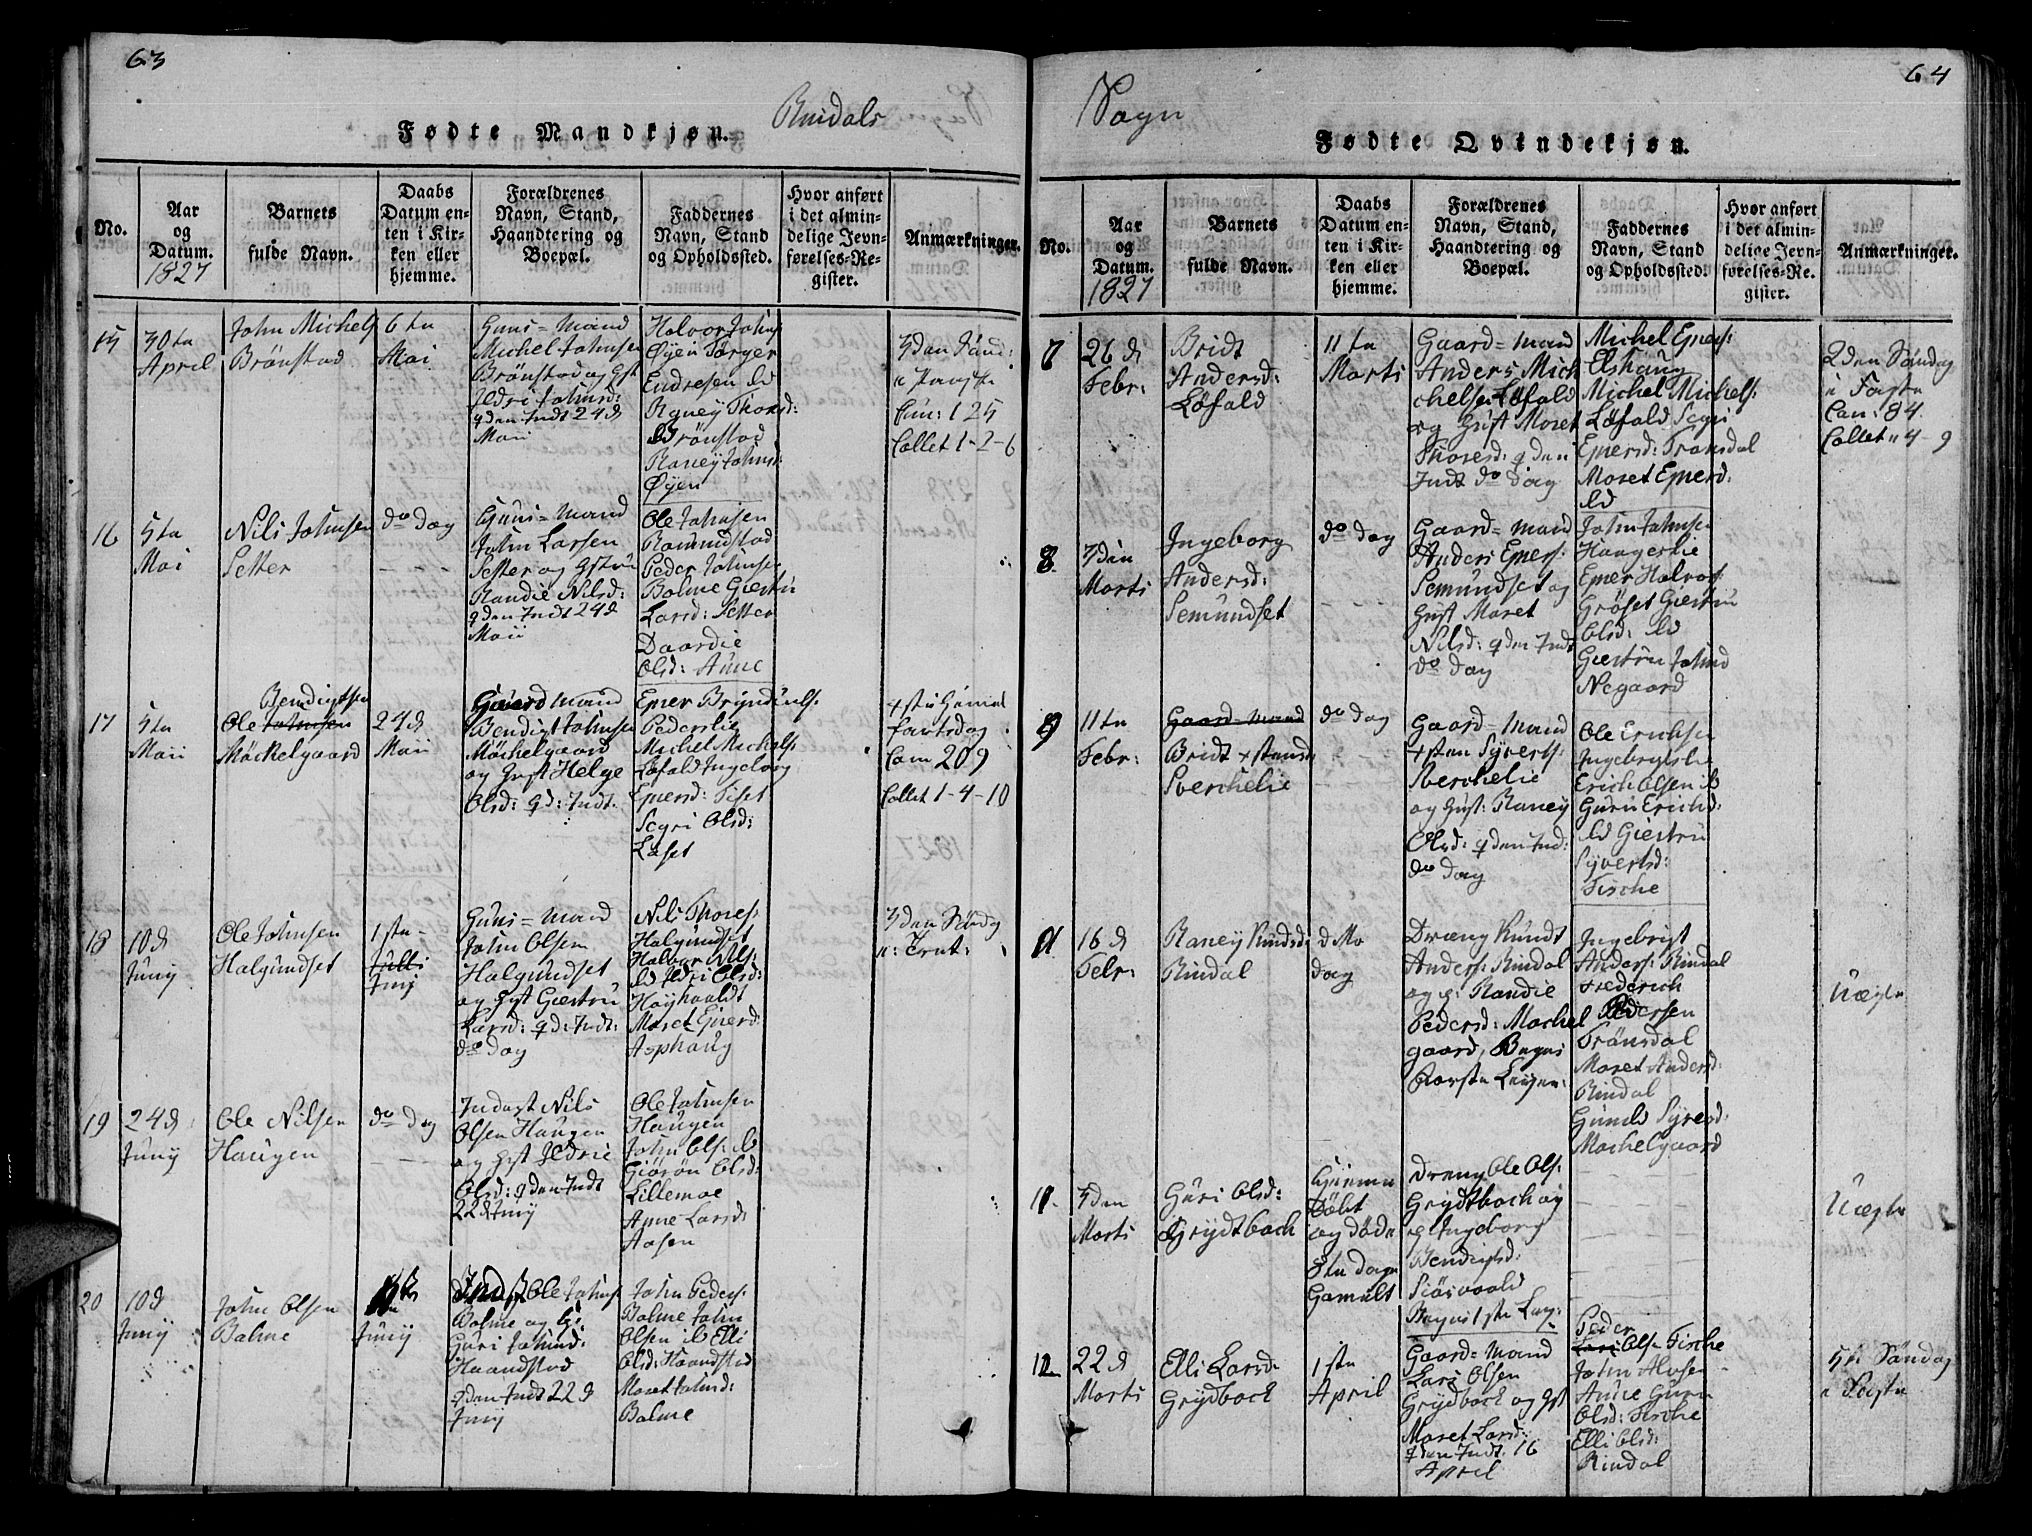 63
Rindals
Fødte Mandkjøn.
No.
Aar
og
Datum.
1827
Barnets
fulde Navn.
Daabs
Datum en-
ten i Kir-
ken eller
hjemme.
Forældrenes
Navn, Stand,
Haandtering og
Boepæl.
Faddernes
Navn, Stand
og Opholdssted.
Hvor anført
i det almin-
delige Jevn-
førelses-Re-
gister.
Anmærkninger.
15
30te
April
John Michels
Brönstad
6te
Mai
Huus=mand
Michel Johnsen
Brönstad og Hst
Ildri Johnsd:
q den Indt 24d
Maii
Halvor Johns
Øyen Törger
Endresen ib
Agney Thorsd:
Brönstad
Raney Johnsd:
Øyen
3den Sönd:
Com: 125
Collet 1-2-6
16
5te
Mai
Nils Johnsen
Setter
do Dag
Huus=mand
John Larsen
Setter og Hstru
Randie Nilsd:
q den Indt 24d
Maii
Ole Johnsen
Romundstad
Peder Johnsen
Bolme Giestru
Larsd: Setter
Daardie
Olsd: Aune
17
5te
Maii
Bendigtsen
Ole Johnsen
Möckelgaard
24d
Maii
Gaard mand
Bendigt Johnsen
Möchelgaard
og Hust Helge
Olsd: q d: Indt.
Ener Brynduls:
Pederslie
Michel Michels:
Löfald Ingeborg
Enersd: Tiset
Segri Olsd:
Laset
Xsti Himmel
fartsdag
Com 209
Collet 1-4-10
18
10d
Junij
Ole Johnsen
Halgundset
1ste
Julli
Junij
Huus=mand
John Olsen
Halgundset
og Hst Giestru
Larsd: q d: Indt:
do Dag
Nils Thores:
Halgundset
Halvor Nils:
ib Ildri Olsd:
Moret Enerd:
Asphaug
3den Söndg
e: Trint:
19
24d
Junij
Ole Nilsen
Haugen
do Dag
Inderst Nils
Olsen Haugen
og Hst Ildrie
Olsd: q den Indt
22d Junij
Ole Johnsen
Haugen
John Ols: ib
Giörön Olsd:
Lillemoe
Anne Larsd:
Aasen
20
10d
Junij
John Olsen
Bolme
Junij
Inds: Ole Johns
Bolme og H:
Guri Johnsd:
Haandstad
q den Indt 22d
Junij
John Peders:
Bolme John
Olsen ib Elli
Olsd: Haandstad
Moret Johnsd:
Bolme
64
Sogn
Fødte Qvindekjøn.
No.
Aar
og
Datum.
1827
Barnets
fulde Navn.
Daabs
Datum en-
ten i Kir-
ken eller
hjemme.
Forældrenes
Navn, Stand,
Haandtering og
Boepæl.
Faddernes
Navn, Stand
og Opholdssted.
Hvor anført
i det almin-
delige Jevn-
førelses-Re-
gister.
Anmærkninger.
7
26d
Febr:
Bridt
Andersd:
Løfald
11te
Marts
Gaard=mand
Anders Mich
chelsen Løfald
og Hust Moret
Thoresd: q den
Indt do Dag
Michel Eners:
Elshaug
Michel Michels:
Løfald Segri
Enersd: Tronsdal
Moret Enersd:
ib
2den Søndag
i Faste
Com: 84
Collet " 4-9
8
3den
Marts
Ingeborg
Andersd:
Semundset
do Dag
Gaard=mand
Anders Eners:
Semundset og
Hust Moret
Nilsd: q den Indt
do Dag
John Johnsen
Haugerlie
Ener Halvors:
Grøset Giestru
Olsd: ib
Giestru Johnsd
Negaard
9
11te
Febr:
Gaard mand
Bridt Xstensd:
Sverchelie
do Dag
Gaard=mand
Xsten Syverts:
Sverchelie
og Hust: Raney
Olsd: q den Ind:
do Dag
Ole Erichsen
Ingebrigtslie
Erich Olsen ib
Guru Erichsd:
ib Giestru
Syvertsd:
Tische
16d
Febr:
Raney Knudsd:
Rindal
d Mo
dag
Dræng Knudt
Anders: Rindal
og p: Randie
Pedersd: Mochel
gaard, Begges
første Leyer:
Ingebrigt
Anders: Rindal
Frederich
Pedersen
Trönsdal
Moret Andersd:
Rindal
Gunild Syversd:
Mochelgaard
Uægte
11.
3den
Marts
Guri Olsd:
Grydtbach
Hiemme
Døbt
og døde
8te dage
Gamelt
Dreng Ole Ols:
Grydtbach og
p Ingeborg
Bendigtsd:
Siösvoold
Begges 1ste Ley:
Uægte
12
22d
Marts
Elli Larsd:
Grydbock
1ste
April
Gaard=mand
Lars Olsen
Grydbock og Hst
Moret Larsd:
q den Indt: 16
April
Peder
Lars Ols: Tische
John Alvsen
Aune Guru
Olsd: Tische
Elli Olsd:
Rindal
5te Søndag
i Faste